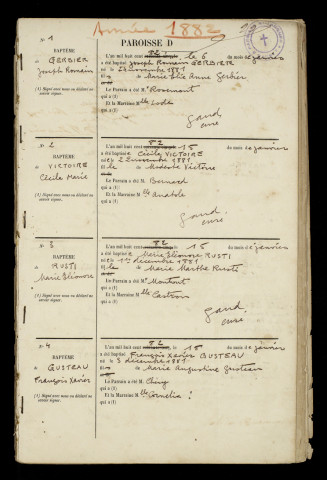 Année 1882
PAROISSE D
N° 1
BAPTÊME
de
GERBIER
Joseph Romain
(1) Signé avec nous ou déclaré ne
savoir signer.
L'an mil huit cent 82, le 6 du mois de janvier
a été baptisé Joseph Romain GERBIER
né le novembre 1881
Marie Anne Gerbier
Le Parrain a été M. Rosemont
qui a (1)
Et la Marraine M lle Lode
qui a (1)
gand
curé
N° 2
BAPTÊME
de
VICTOIRE
Cécile Marie
(1) Signé avec nous ou déclaré ne
savoir signer.
L'an mil huit cent 82, le 15 du mois de janvier
a été baptisé e Cécile VICTOIRE
né e 22 novembre 1881
et de Modeste Victoire
Le Parrain a été M. Bernard
qui a (1)
Et la Marraine M lle Anatole
qui a (1)
gand
curé
N° 3
BAPTÊME
de
RUSTI
Marie Eléonore
(1) Signé avec nous ou déclaré ne
savoir signer.
L'an mil huit cent 82, le 15 du mois de janvier
a été baptisé e Marie Eléonore RUSTI
né e 1er décembre 1881
et de Marie Marthe Rusti
Le Parrain a été M. Montout
qui a (1)
Et la Marraine M lle
qui a (1)
gand
curé
N° 4
BAPTÊME
de
GUSTEAU
François Xavier
(1) Signé avec nous ou déclaré ne
savoir signer.
L'an mil huit cent 82, le 15 du mois de janvier
a été baptisé François Xavier GUSTEAU
né le 3 décembre 1881
de Marie Augustine Gusteau
Le Parrain a été M. Chivry
qui a (1)
Et la Marraine M lle Cornélia
qui a (1)